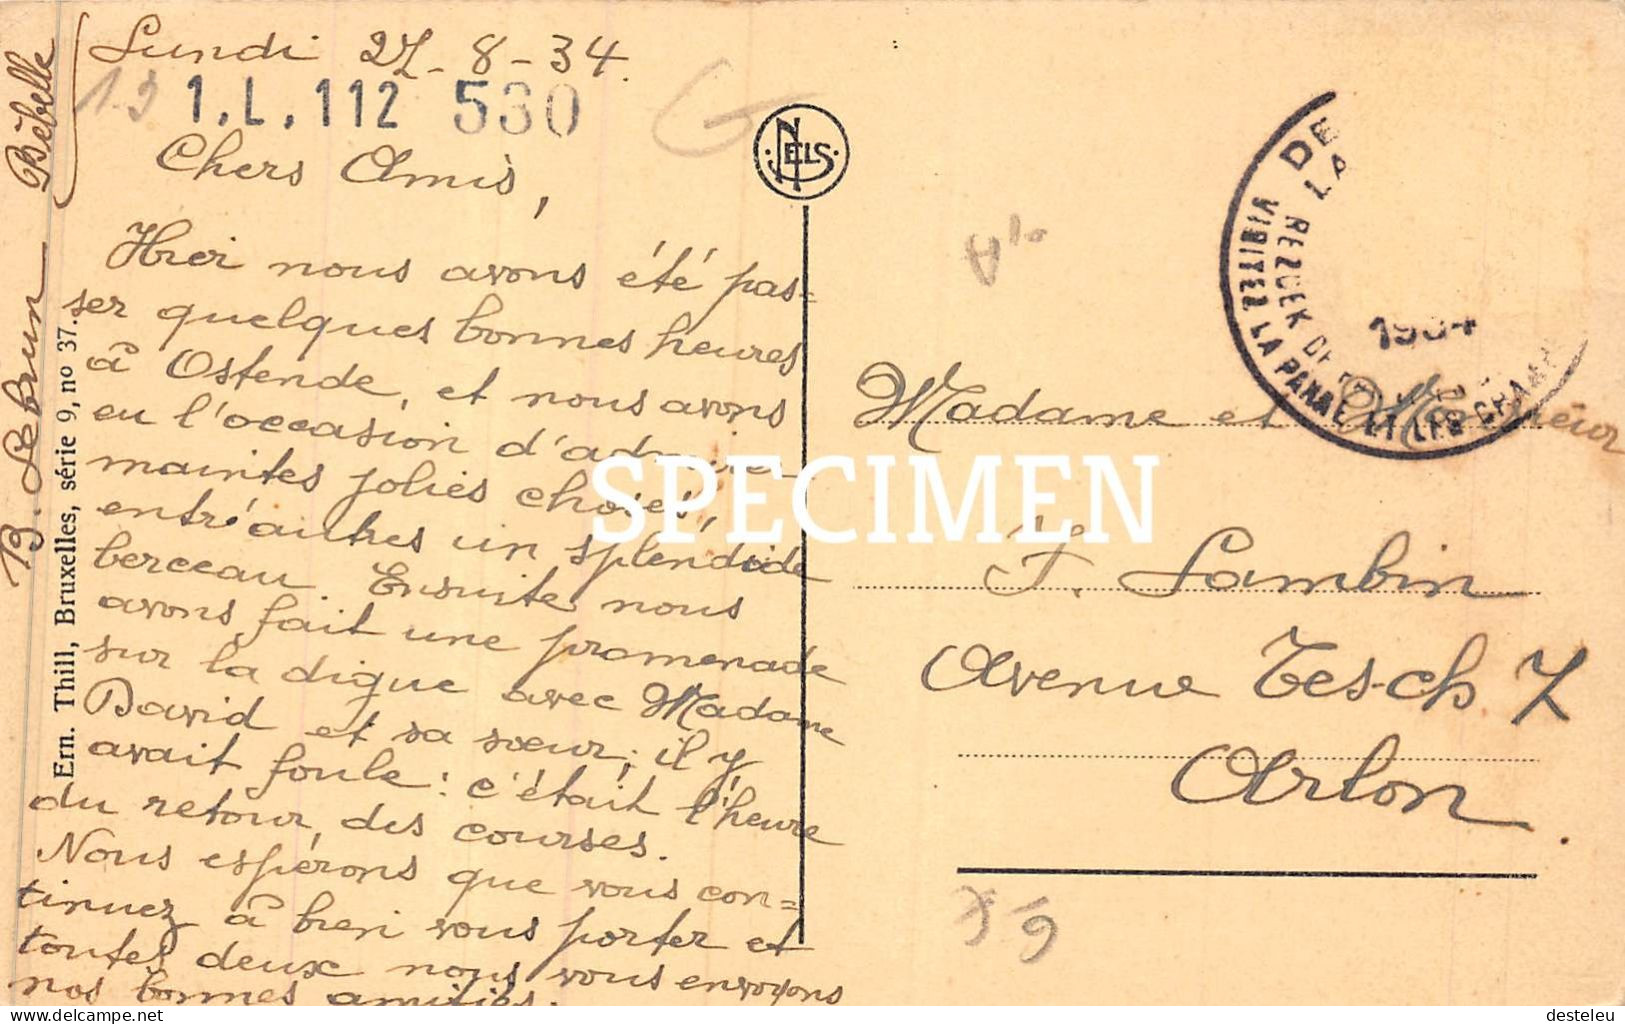 Lundi 27-8-34.
1.L.112 530
Chers Amis,
Hier nous avons été pas=
ser quelques bonnes heures
à Ostende, et nous avons
eu l'occasion d'admirer
maintes jolies choses,
entr'autres un splendide
berceau Ensuite nous
avons fait une promenade
sur la digue avec Madame
David et sa soeur; il y
avait foule: c'était l'heure
du retour, des courses.
Nous espérons que vous con=
tinuez à bien vous porter et
toutes deux nous vous envoyons
nos bonnes amitiés.
B. Lebrun Bébelle
Ern. Thill, Bruxelles, série 9, no 37.
NELS
DE
LA
BEZOEK DE
VISITEZ LA PANNE ET LES
1934
Madame et Monsieur
F. Lambin
Avenue Tesch 7
Arlon.
SPECIMEN
delcampe.net
desteleu